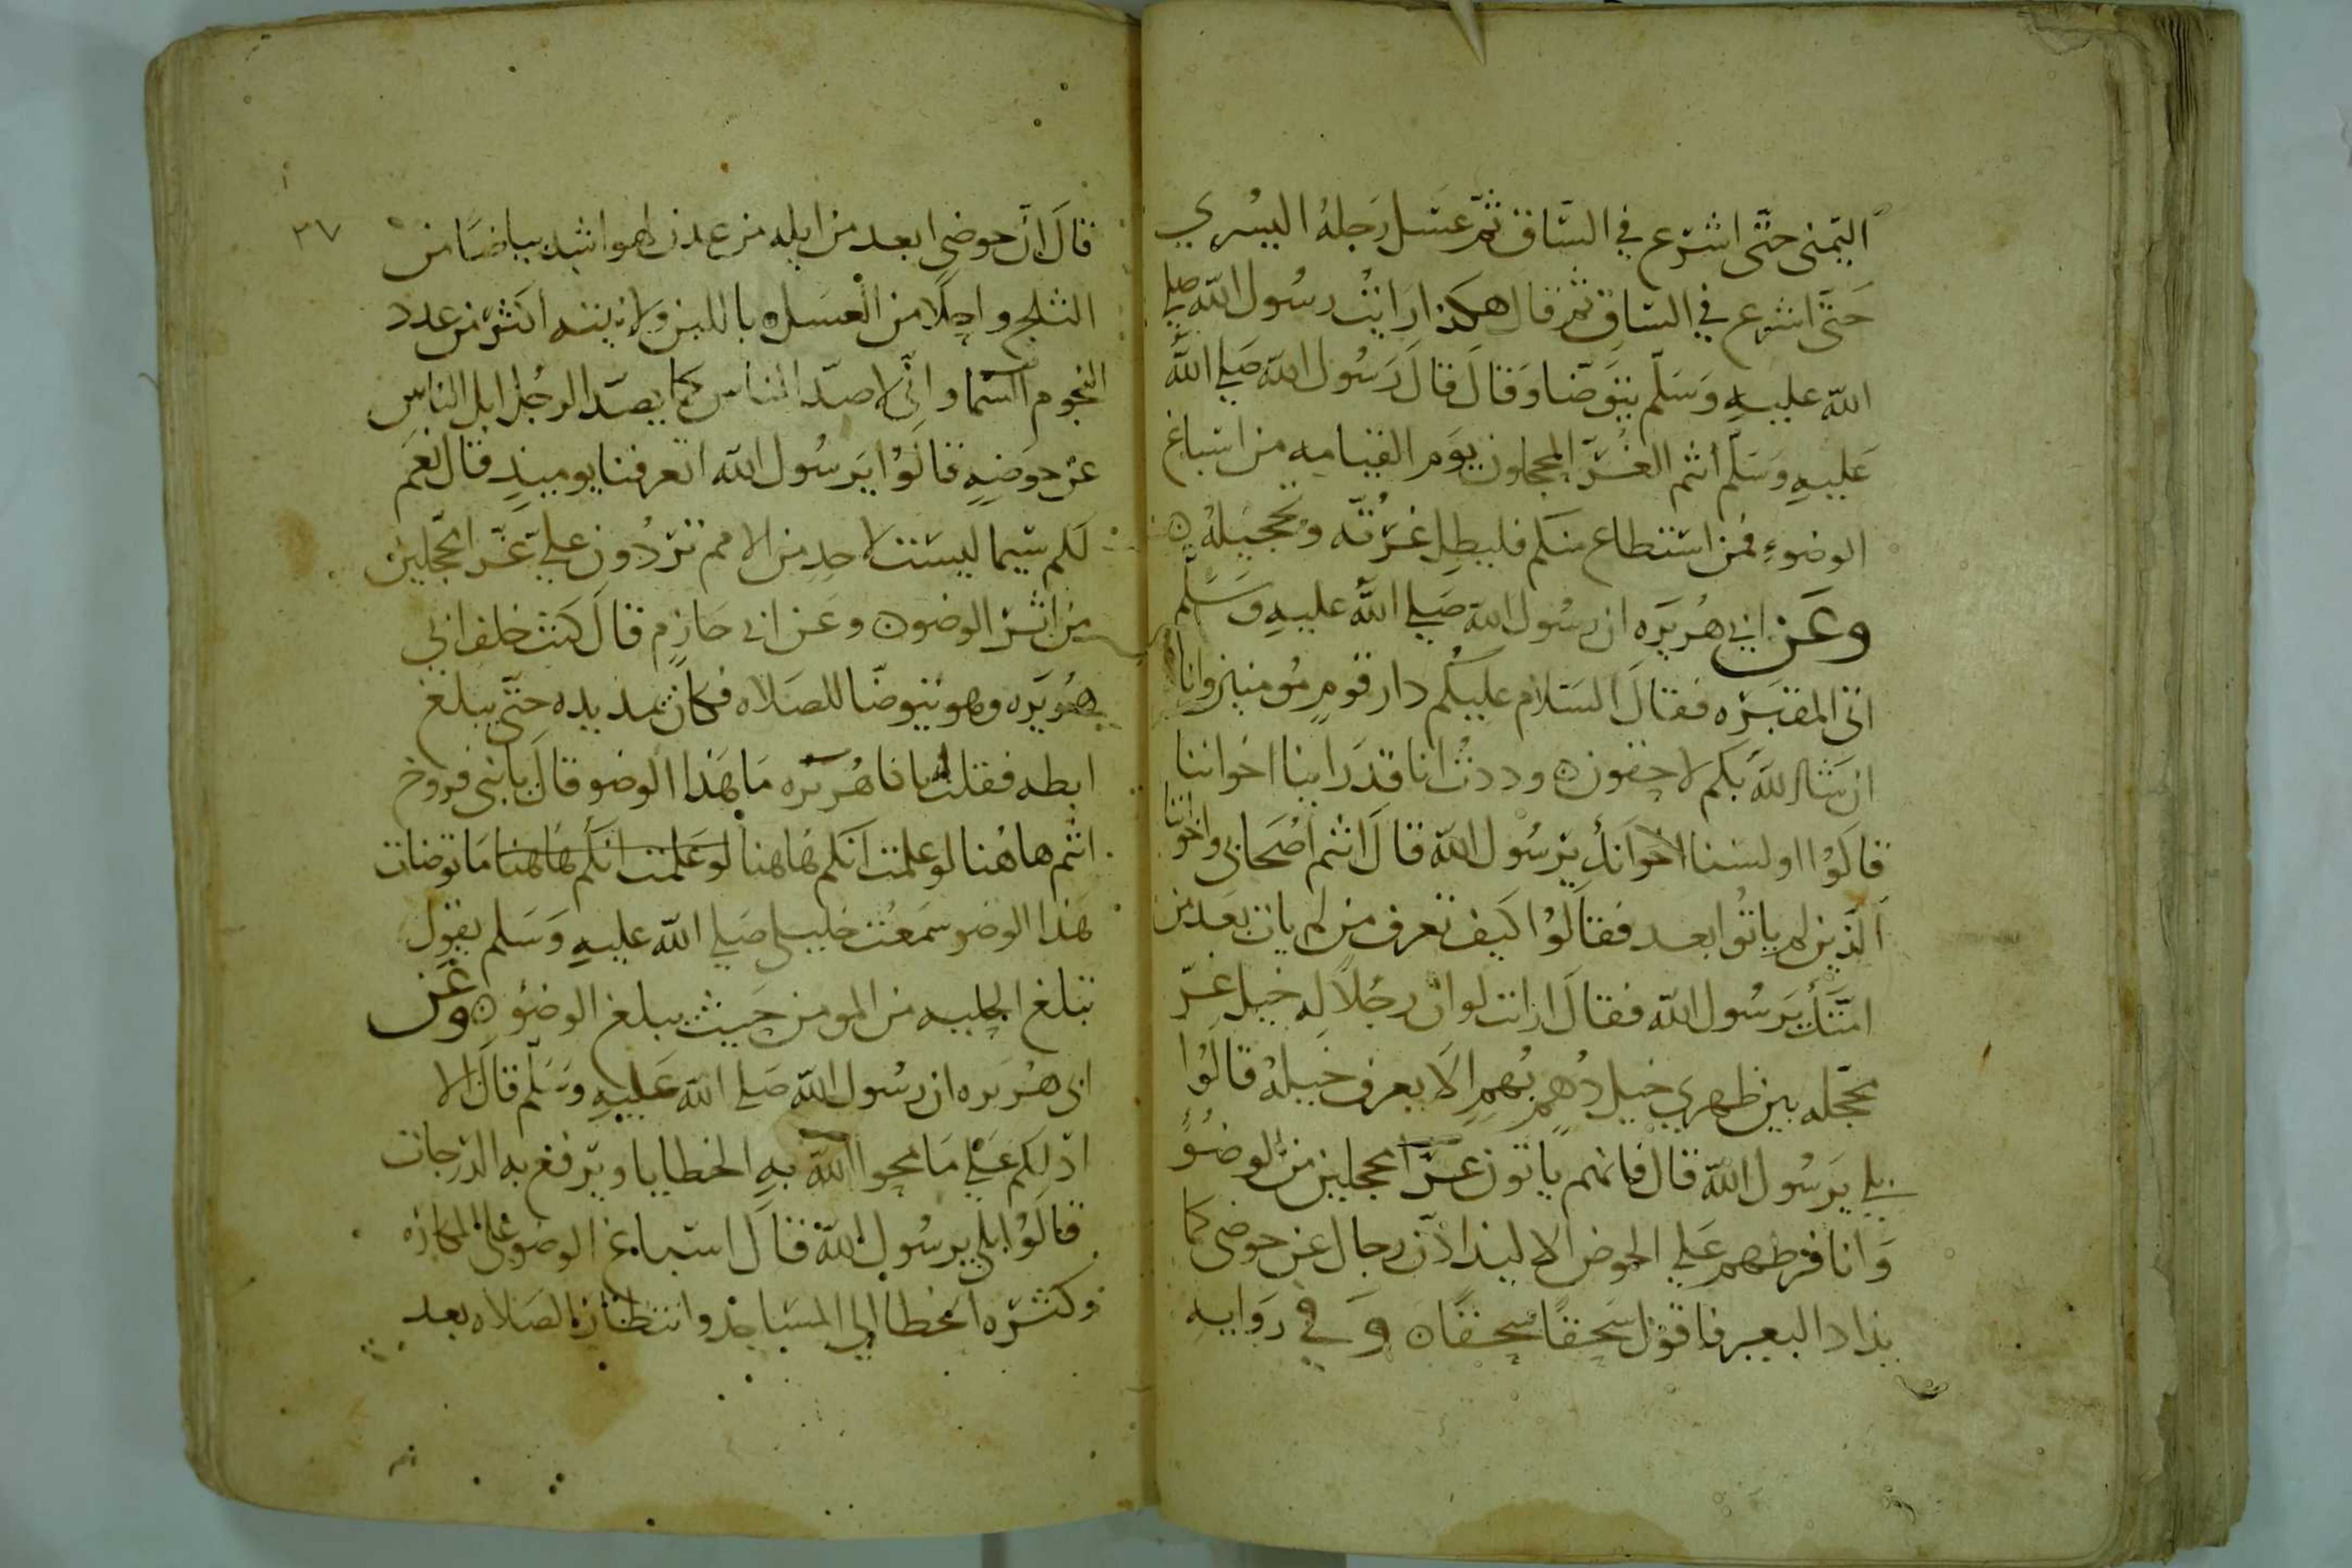 اليمنى حتى اشرع في الساق ثم غسل رجله اليسري
حتى اشرع في الساق ثم قال هكذا رايت رسول الله صلي
الله عليه وسلم يتوضا وقال قال رسول الله صلي الله
عليه وسلم انتم الغر المحجلون يوم القيامه من اسباغ
الوضوء فمن استطاع منكم فليطل غرته وتحجيله
وعن ابي هريره ان رسول الله صلي الله عليه وسلم
اتى المقبره فقال السلام عليكم دار قوم مومنين وانا
ان شا الله بكم لاحقون وددت انا قد راينا اخواننا
قالوا اولسنا اخوانك يرسول الله قال انتم اصحابي واخواننا
الذين لم ياتوا بعد فقالوا كيف تعرف من لم يات بعد من
امتك يرسول الله فقال ارايت لو ان رجلا له خيل غر
محجله بين ظهري خيل دهم بهم الا يعرف خيله قالوا
بلي يرسول الله قال فانهم ياتون غرا محجلين من الوضوء
وانا فرطهم علي الحوض الا ليذادن رجال عن حوضي كما
يذاد البعير فاقول سحقا سحقا وفي روايه
٣٧
قال ان حوضي ابعد من ايله من عدن لهو اشد بياضا من
الثلج واحلا من العسل باللبن ولانيته اكثر من عدد
النجوم السما واني لاصد الناس كما يصد الرجل ابل الناس
عن حوضه قالوا يرسول الله اتعرفنا يوميذ قال نعم
لكم سيما ليست لاحد من الامم تردون علي غر المحجلين
من اثر الوضو وعن ابي حازم قال كنت خلف ابي
هريره وهو يتوضا للصلاه فكان يمد يده حتى يبلغ
ابطه فقلت يا با هريره ما هذا الوضو قال يا بني فروخ
انتم هاهنا لو علمت انكم هاهنا لو علمت انكم هاهنا ما توضات
هذا الوضو سمعت خليلي صلي الله عليه وسلم يقول
تبلغ الحليه من المومن حيث يبلغ الوضو وعن
ابي هريره ان رسول الله صلي الله عليه وسلم قال الا
ادلكم علي ما يمحوا الله به الخطايا ويرفع به الدرجات
قالوا بلي يرسول الله قال اسباغ الوضو على المكاره
وكثره الخطا الي المساجد وانتظار الصلاه بعد